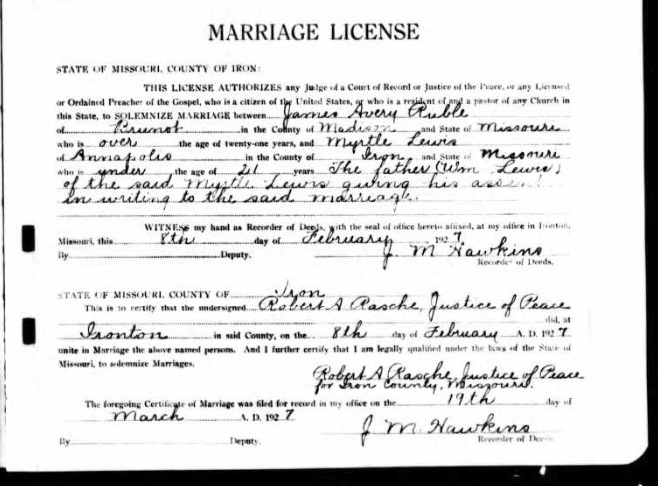 MARRIAGE LICENSE
STATE OF MISSOURI, COUNTY OF IRON:
THIS LICENSE AUTHORIZES any Judge of a Court of Record or Justice of the Peace, or any Licensed
or Ordained Preacher of the Gospel, who is a citizen of the United States, or who is a resident of and a pastor of any Church in
this State, to SOLEMNIZE MARRIAGE between James Avery Ruble
of Brunot in the County of Madison and State of Missouri
who is over the age of twenty-one years, and Myrtle Lewis
of Annapolis in the County of Iron and State of Missouri
who is under the age of 21 years The father (Wm Lewis)
of the said Myrtle Lewis giving his assent
in writing to the said marriage.
WITNESS my hand as Recorder of Deeds, with the seal of office hereto affixed, at my office in Ironton,
Missouri, this 8th day of February 1927
By Deputy. J. M Hawkins
Recorder of Deeds.
STATE OF MISSOURI, COUNTY OF Iron
This is to certify that the undersigned Robert A Rasche, Justice of Peace
did, at
Ironton in said County, on the 8th day of February A. D. 1927
unite in Marriage the above named persons. And I further certify that I am legally qualified under the laws of the State of
Missouri, to solemnize Marriages.
Robert A Rasche, Justice of Peace
for Iron County, Missouri.
The foregoing Certificate of Marriage was filed for record in my office on the 19th day of
March A. D. 1927
J. M. Hawkins
By Deputy. Recorder of Deeds.